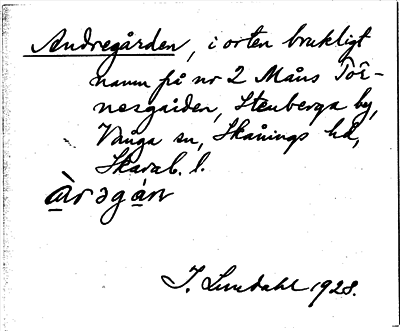 Andregården, i orten brukligt
namn på nr 2 Måns Tors-
nesgården, Stenberga by,
Vånga sn, Skånings hd,
Skarab. l.
À̱rəgá̱n
J. Lundahl 1928.